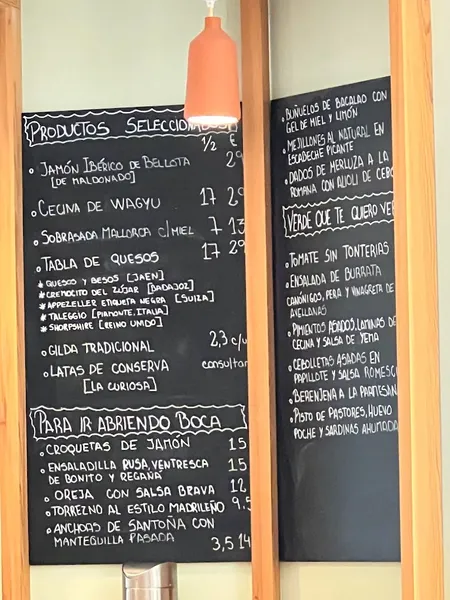 PRODUCTOS SELECCIONADOS
1/2 €
• JAMÓN IBÉRICO DE BELLOTA
[DE MALDONADO]
• CECINA DE WAGYU 17
• SOBRASADA MALLORCA C/MIEL 7 13
• TABLA DE QUESOS 17
* QUESOS Y BESOS [JAEN]
* CREMOCITO DEL ZÚJAR [BADAJOZ]
* APPEZELLER ETIQUETA NEGRA [SUIZA]
* TALEGGIO [PIAMONTE, ITALIA]
* SHORPSHIRE [REINO UNIDO]
• GILDA TRADICIONAL 2,3 c/u
• LATAS DE CONSERVA consultar
[LA CURIOSA]
PARA IR ABRIENDO BOCA
• CROQUETAS DE JAMÓN 15
• ENSALADILLA RUSA, VENTRESCA 15
DE BONITO Y REGAÑÁ
• OREJA CON SALSA BRAVA 12
• TORREZNO AL ESTILO MADRILEÑO 9.5
• ANCHOAS DE SANTOÑA CON
MANTEQUILLA PASADA 3,5 14
• BUÑUELOS DE BACALAO CON
GEL DE MIEL Y LIMÓN
• MEJILLONES AL NATURAL EN
ESCABECHE PICANTE
• DADOS DE MERLUZA A LA
ROMANA CON ALIOLI DE
VERDE QUE TE QUIERO
• TOMATE SIN TONTERIAS
• ENSALADA DE BURRATA
CANÓNIGOS, PERA Y VINAGRETA DE
AVELLANAS
• PIMIENTOS ASADOS, LAMINAS DE
CECINA Y SALSA DE YEMA
• CEBOLLETAS ASADAS EN
PAPILLOTE Y SALSA ROMESCO
• BERENJENA A LA PARMESANA
• PISTO DE PASTORES, HUEVO
POCHE Y SARDINAS AHUMADA